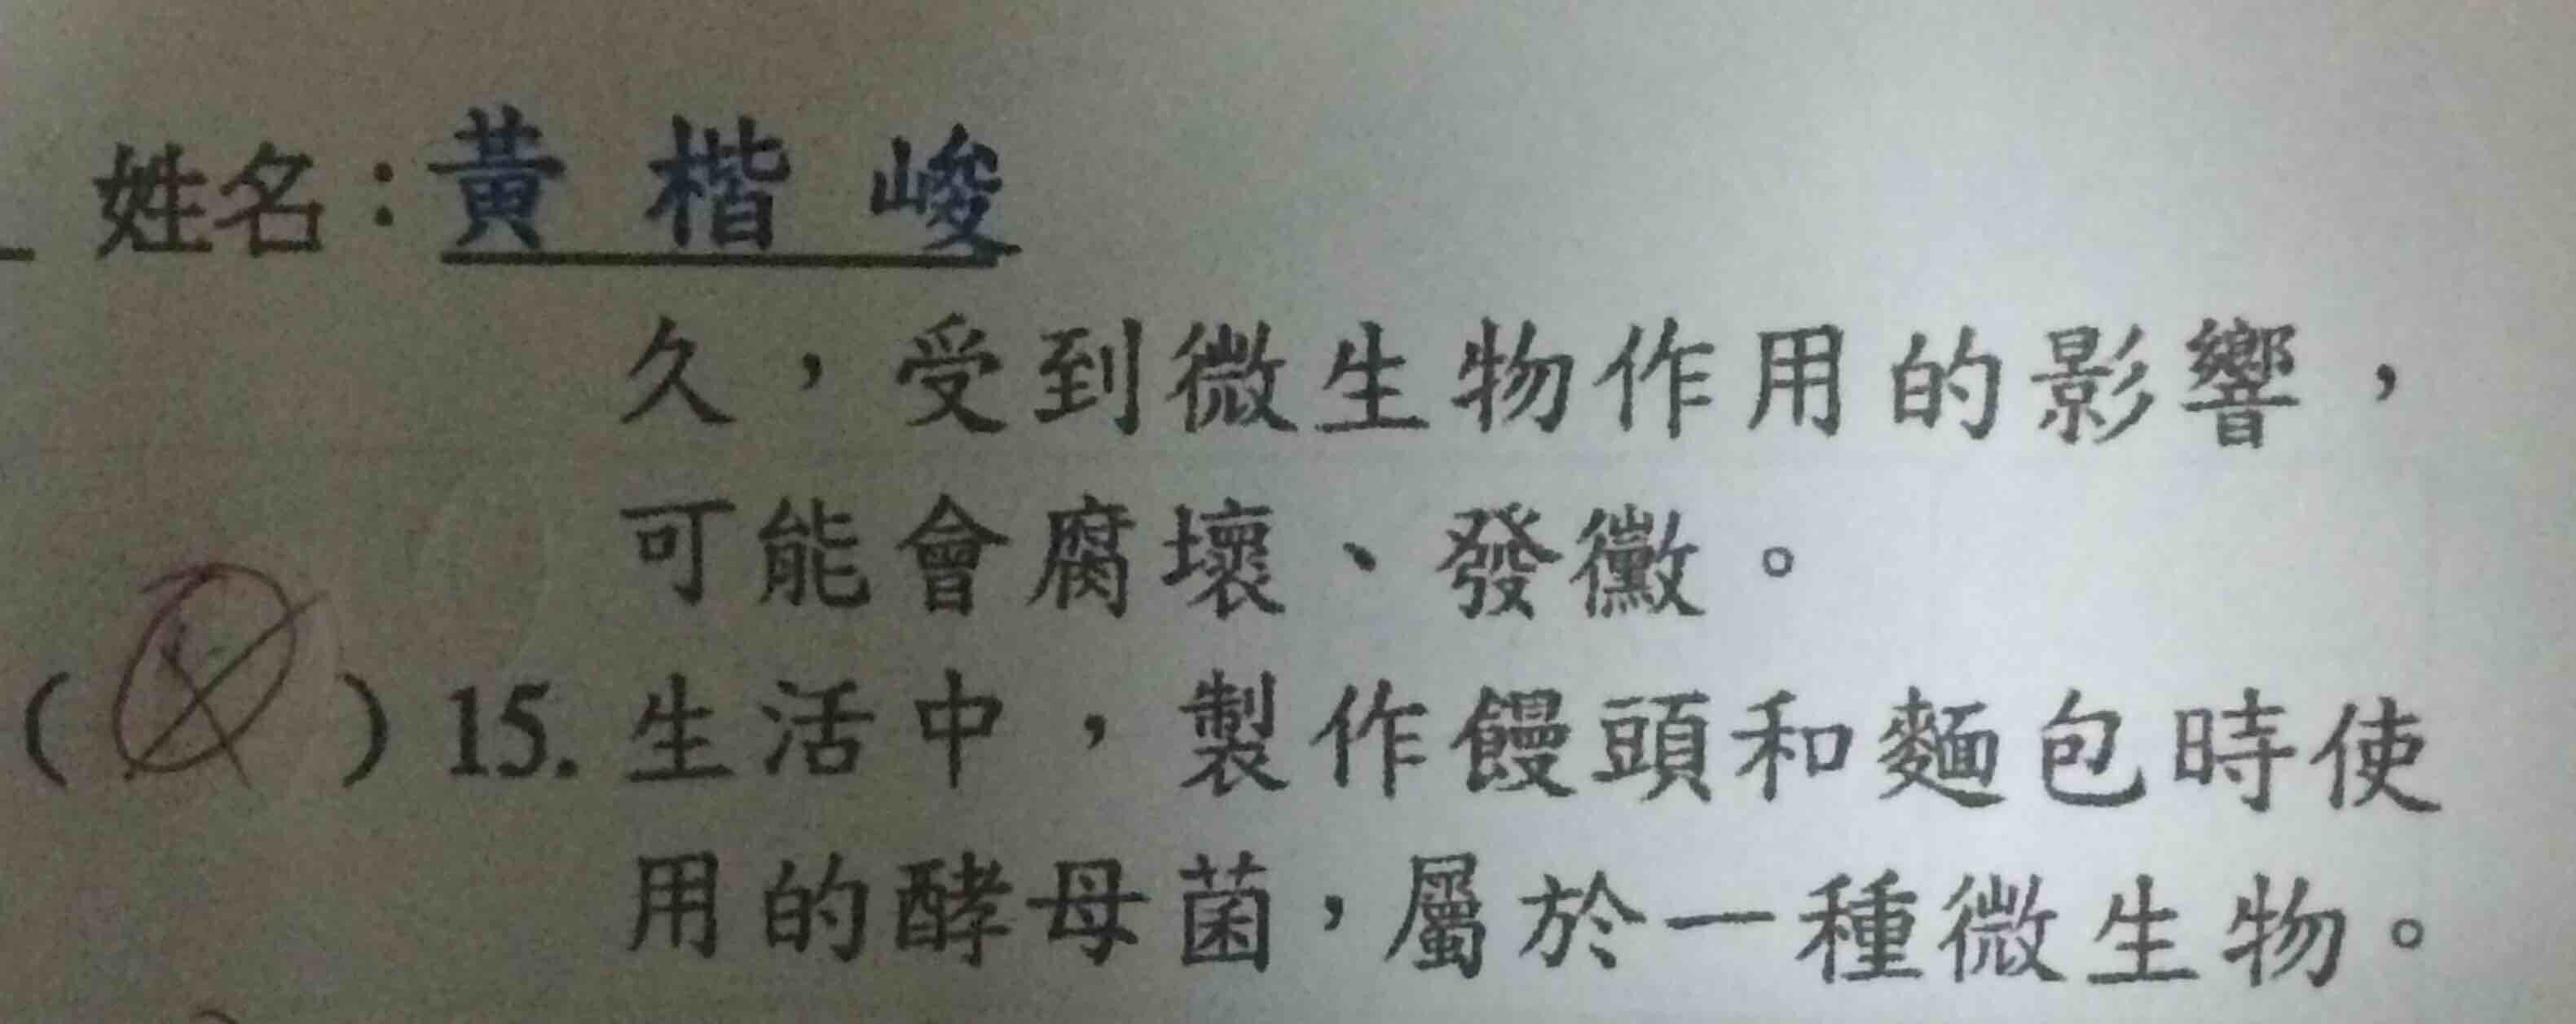 姓名：黃楷峻
久，受到微生物作用的影響，
可能會腐壞、發黴。
（╳）15. 生活中，製作饅頭和麵包時使
用的酵母菌，屬於一種微生物。